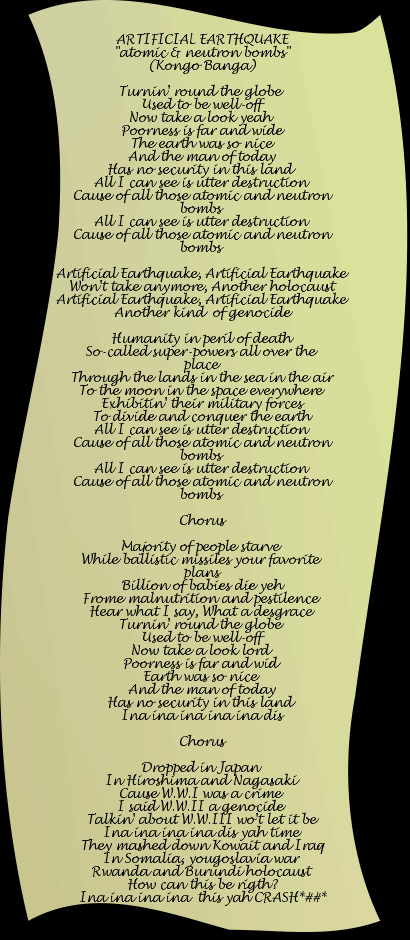 ARTIFICIAL EARTHQUAKE
"atomic & neutron bombs"
(Kongo Banga)
Turnin' round the globe
Used to be well-off
Now take a look yeah
Poorness is far and wide
The earth was so nice
And the man of today
Has no security in this land
All I can see is utter destruction
Cause of all those atomic and neutron
bombs
All I can see is utter destruction
Cause of all those atomic and neutron
bombs
Artificial Earthquake, Artificial Earthquake
Won't take anymore, Another holocaust
Artificial Earthquake, Artificial Earthquake
Another kind of genocide
Humanity in peril of death
So-called super-powers all over the
place
Through the lands in the sea in the air
To the moon in the space everywhere
Exhibitin' their military forces
To divide and conquer the earth
All I can see is utter destruction
Cause of all those atomic and neutron
bombs
All I can see is utter destruction
Cause of all those atomic and neutron
bombs
Chorus
Majority of people starve
While ballistic missiles your favorite
plans
Billion of babies die yeh
Frome malnutrition and pestilence
Hear what I say, What a desgrace
Turnin' round the globe
Used to be well-off
Now take a look lord
Poorness is far and wid
Earth was so nice
And the man of today
Has no security in this land
Ina ina ina ina ina dis
Chorus
Dropped in Japan
In Hiroshima and Nagasaki
Cause W.W.I was a crime
I said W.W.II a genocide
Talkin' about W.W.III wo't let it be
Ina ina ina ina dis yah time
They mashed down Kowait and Iraq
In Somalia, yougoslavia war
Rwanda and Burundi holocaust
How can this be rigth?
Ina ina ina ina this yah CRASH*##*